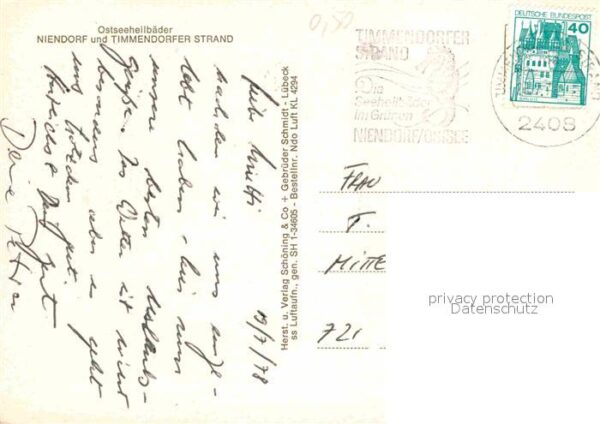 Ostseeheilbäder
NIENDORF und TIMMENDORFER STRAND
0,50
TIMMENDORFER
STRAND
Die
Seeheilbäder
im Grünen
NIENDORF/OSTSEE
DEUTSCHE BUNDESPOST
40
2408
19/7/78
nachdem wir uns einge-
lebt haben, hier nun
unsere besten Urlaubs-
grüße. Das Wetter ist nicht
besonders, aber es geht
uns trotzdem gut.
Deine
Herst. u. Verlag Schöning & Co + Gebrüder Schmidt - Lübeck
ss Luftaufn., gen. SH 1-34605 - Bestellnr. Ndo Luft KL 4294
FRAU
F.
MITTE
721
privacy protection
Datenschutz